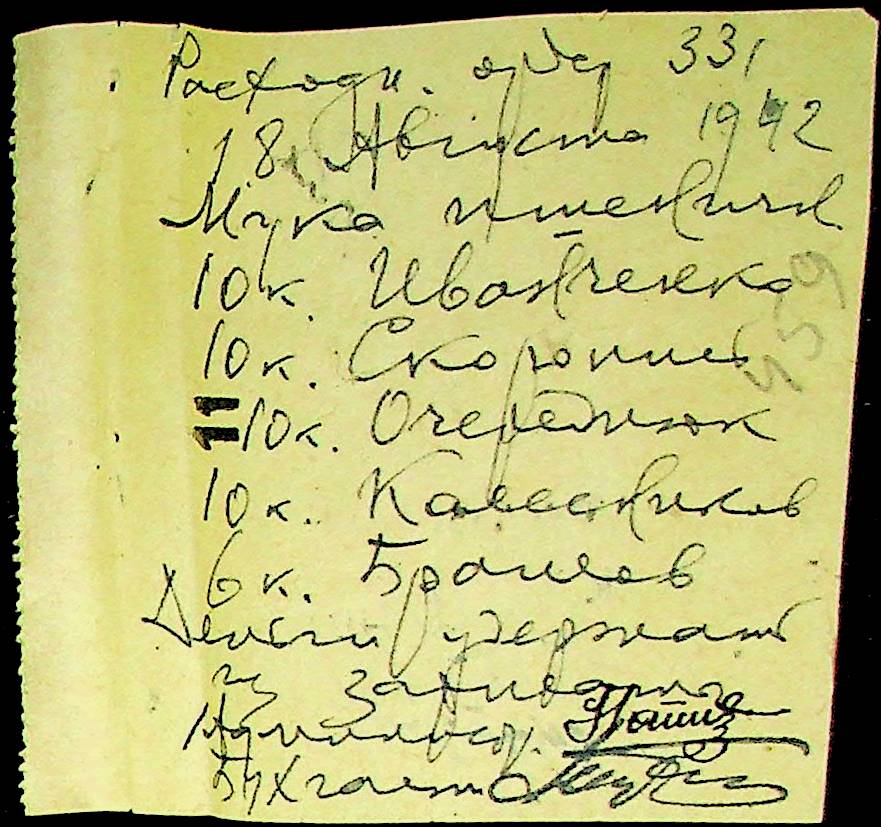 Расходн. ордер 331
18 Августа 1942
Мука пшеничн
10 к. Иванченко
10 к. Скоропис
11 10 к. Очереднюк
10 к. Калесников
6 к. Брашев
Деньги удержат
из зарплаты
459
Бухгалт